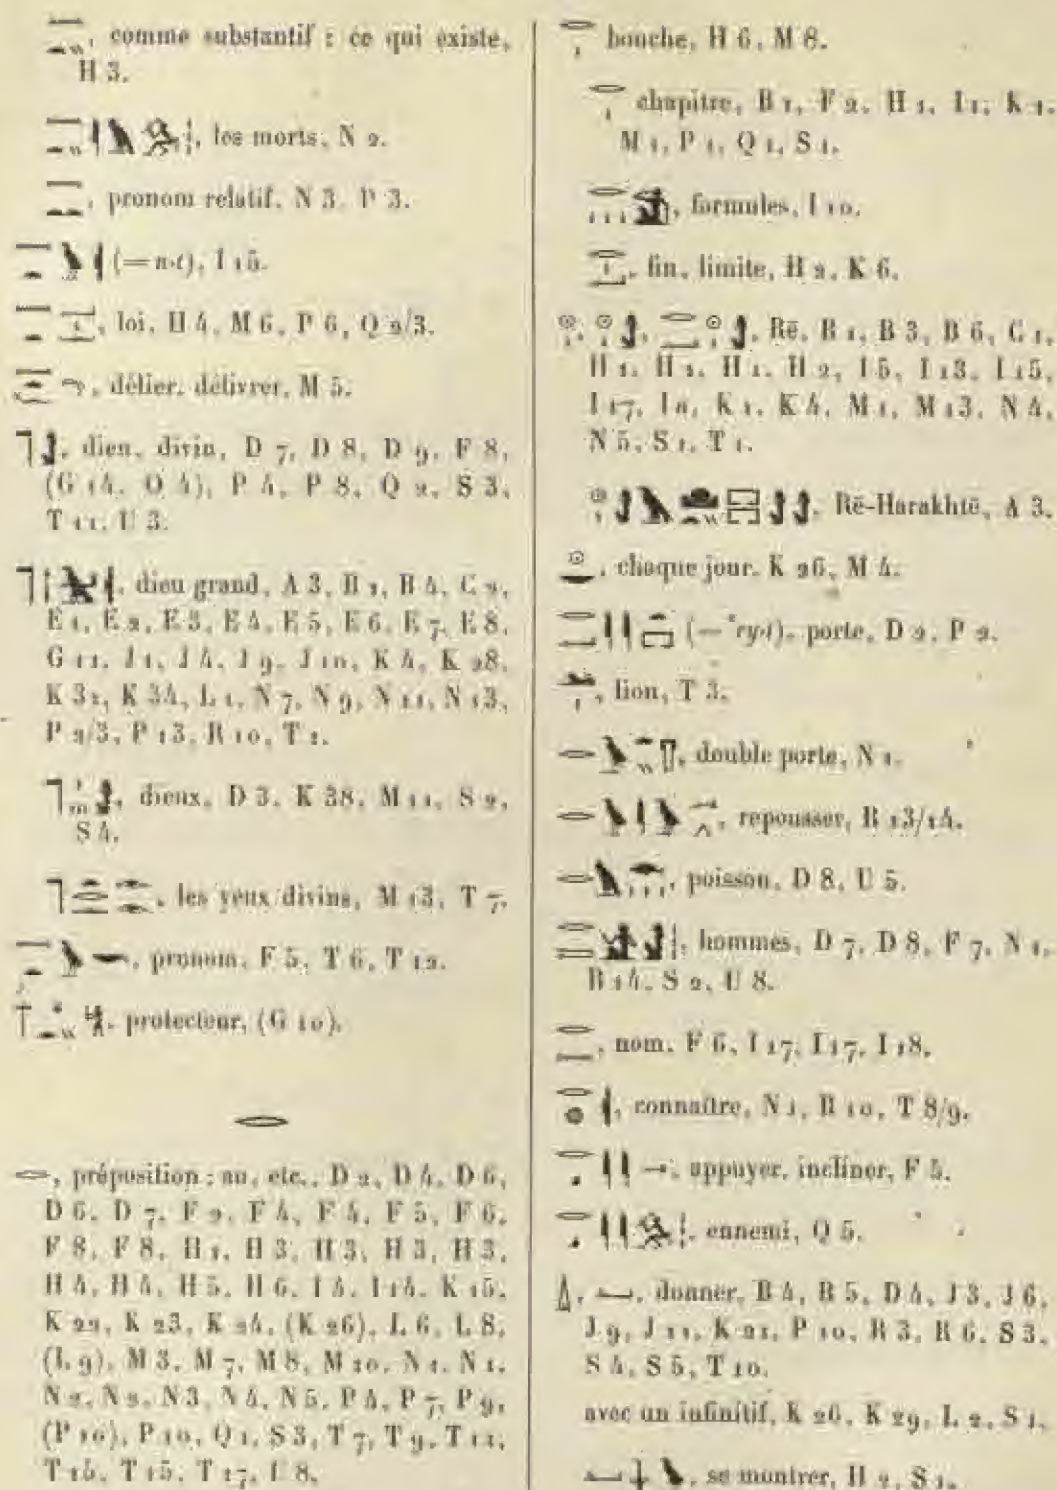 , comme substantif : ce qui existe,
H 3.
, les morts, N 2.
, pronom relatif, N 3, P 3.
(= n·t), I 15.
, loi, H 4, M 6, P 6, Q 2/3.
, délier, délivrer, M 5.
, dieu, divin, D 7, D 8, D 9, F 8,
(G 14, O 4), P 4, P 8, Q 2, S 3,
T 11, U 3.
, dieu grand, A 3, B 1, B 4, C 2,
E 1, E 2, E 3, E 4, E 5, E 6, E 7, E 8,
G 11, J 1, J 4, J 9, J 10, K 4, K 28,
K 32, K 34, L 1, N 7, N 9, N 11, N 13,
P 2/3, P 13, R 10, T 1.
, dieux, D 3, K 38, M 11, S 2,
S 4.
, les yeux divins, M 13, T 7.
, pronom, F 5, T 6, T 12.
, protecteur, (G 10).
, préposition : au, etc., D 2, D 4, D 6,
D 6, D 7, F 2, F 4, F 4, F 5, F 6,
F 8, F 8, H 1, H 3, H 3, H 3, H 3,
H 4, H 4, H 5, H 6, I 4, I 14, K 15,
K 22, K 23, K 24, (K 26), L 6, L 8,
(L 9), M 3, M 7, M 8, M 10, N 1, N 1,
N 2, N 2, N 3, N 4, N 5, P 4, P 7, P 9,
(P 10), P 10, Q 1, S 3, T 7, T 9, T 11,
T 15, T 15, T 17, U 8.
bouche, H 6, M 8.
chapitre, B 1, F 2, H 1, I 1, K 1,
M 1, P 1, Q 1, S 1.
, formules, I 10.
, fin, limite, H 2, K 6.
, Rē, B 1, B 3, B 6, C 1,
H 1, H 1, H 1, H 2, I 5, I 13, I 15,
I 17, I 8, K 1, K 4, M 1, M 13, N 4,
N 5, S 1, T 1.
, Rē-Harakhtē, A 3.
, chaque jour, K 26, M 4.
(= ʿry·t), porte, D 2, P 2.
, lion, T 3.
, double porte, N 1.
, repousser, R 13/14.
, poisson, D 8, U 5.
, hommes, D 7, D 8, F 7, N 1,
R 14, S 2, U 8.
, nom, F 6, I 17, I 17, I 18.
, connaître, N 1, R 10, T 8/9.
, appuyer, incliner, F 5.
, ennemi, Q 5.
, donner, B 4, B 5, D 4, J 3, J 6,
J 9, J 11, K 21, P 10, R 3, R 6, S 3,
S 4, S 5, T 10.
avec un infinitif, K 26, K 29, L 2, S 1.
, se montrer, H 2, S 1.